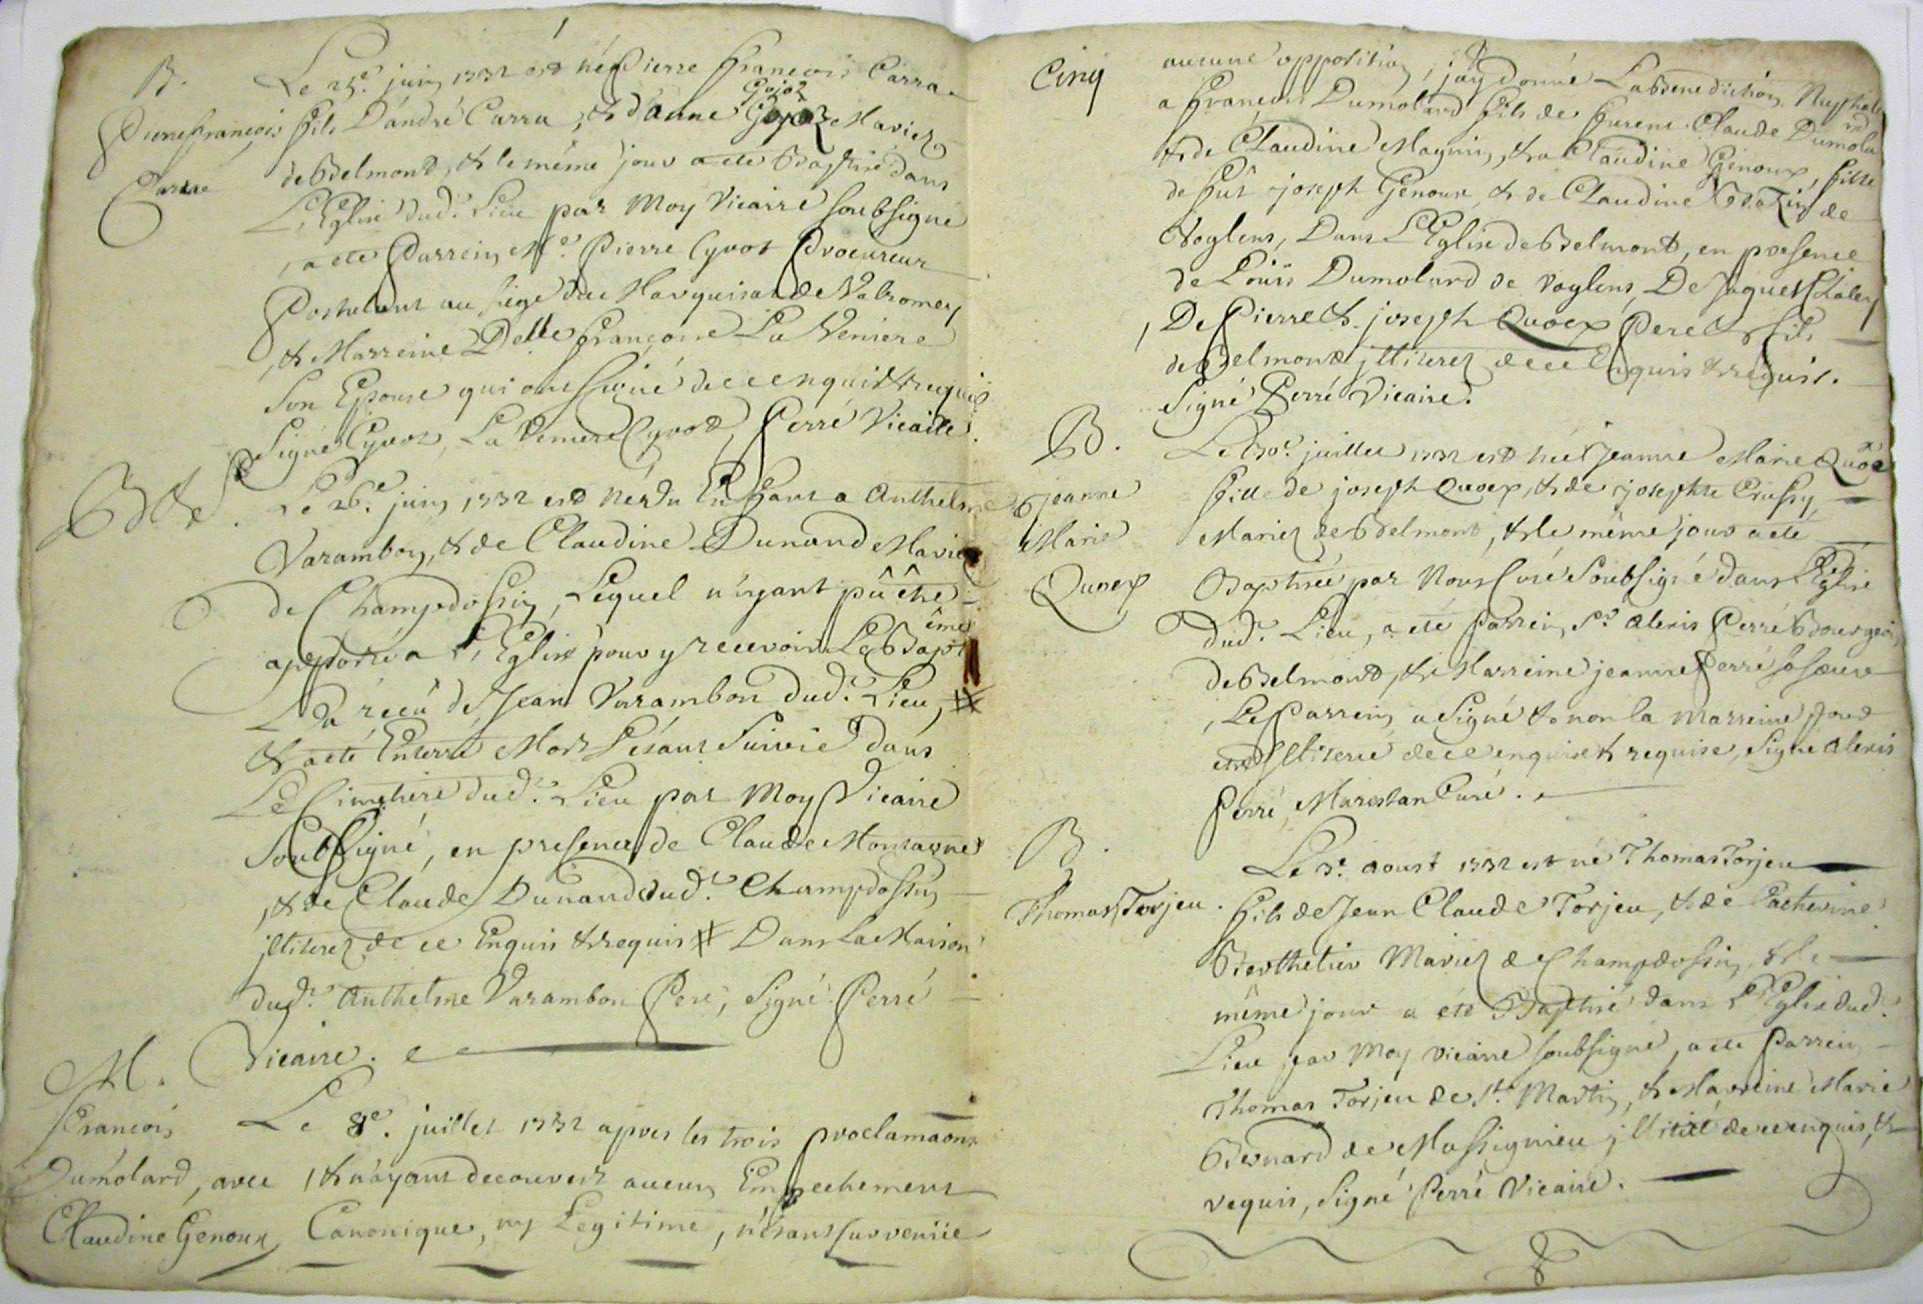 B.
Pierre françois
Carra
Le 25e. juin 1732 est né Pierre françois Carra
fils D'andré Carra, & d'anne Gojoz Mariez
de Belmont, & le même jour a eté Baptisé dans
L'Eglise dud.t Lieu par Moy Vicaire soubsigné
, a eté Parrein Me. Pierre Cyvot Procureur
Postulant au siege du Marquisat de Valromey
, & Marreine Delle françoise La Veniere
Son Epouse qui ont signé de ce enquis & requis
Signé Cyvot, La Veniere Cyvot, Perré Vicaire.
B & S.
Le 26e. juin 1732 est né & Du Enfant a Anthelme
Varambon, & de Claudine Dunand Mariez
de Champdossin, Lequel n'ayant pû être
apporté a L'Eglise pour y recevoir Le Baptême
L'a réçû de Jean Varambon dud.t Lieu, #
& a eté Enterré Mort Lésant Suivie dans
Le Cimetiere dud.t Lieu par Moy Vicaire
Soubsigné, en presence de Claude Montagne
, & de Claude Dunand dud.t Champdossin
jlliterez de ce Enquis & requis # Dans La Maison
dud.t Anthelme Varambon Pere, Signé Perré
Vicaire.
M.
François
Dumolard, avec
Claudine Genoux
Le 8e. juillet 1732 apres les trois proclamaons
, & n'ayant decouvert aucun Empechement
Canonique, ny Legitime, n'étant survenüe
Cinq
aucune opposition, j'ay donné La Benediction Nuptiale
a François Dumolard fils de furent Claude Dumolard
& de Claudine Magnin, & a Claudine Genoux, fille
de fût joseph Genoux, & de Claudine Bazin de
Voglens, Dans L'Eglise de Belmont, en presence
de Loüis Dumolard de Voglens, De Jaques Chaley
, De Pierre & joseph Quoex Pere & fils
de Belmont jlliterez de ce Enquis & requis.
Signé Perré Vicaire.
B.
Jeanne
Marie
Quoex
Le 30e. juillet 1732 est née Jeanne Marie Quoex
fille de joseph Quoex, & de josephte Crussy,
Mariez de Belmont, & le même jour a eté
Baptisée par Nous Curé Soubsigné dans L'Eglise
dud.t Lieu, a eté Parrein Sr. Alexis Perré Bourgeois
de Belmont, & Marreine jeanne Perré sa soeur
, Le Parrein a Signé & non la Marreine pour
être jlliterée de ce enquise & requise, Signé Alexis
Perré, Marestan Curé.
B.
Thomas Torjeu.
Le 3e. Aoust 1732 est né Thomas Torjeu
fils de Jean Claude Torjeu, & de Catherine
Berthetier Mariez de Champdossin, & le
même jour a eté Baptisé dans L'Eglise dud.t
Lieu par Moy Vicaire soubsigné, a eté Parrein
Thomas Torjeu de St. Martin, & Marreine Marie
Bernard de Massignieu jlliteré de ce enquis, &
requis, Signé Perré Vicaire.